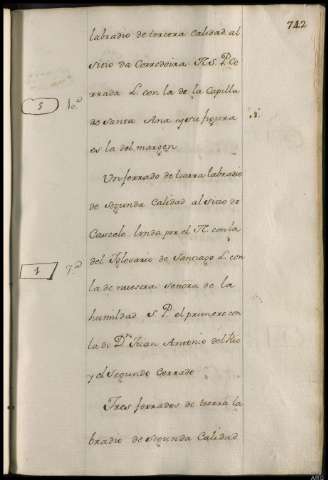 742
labradio de tercera Calidad al
Sitio da Corredoira. N. S. P. Ce
rrada L. con la de la Capilla
5 10.º de Santa Ana y esu figura
es la del margen
Un ferrado de tierra labradio
de Segunda Calidad al Sitio de
Cancelo linda por el N. con la
del Yglesario de Santiago L. con
1 7.º la de nuestra Señora de la
humildad S. P. el primero con
la de Dn. Juan Antonio del Rio
y el Segundo Cerrado
Tres ferrados de tierra la
bradio de Segunda Calidad